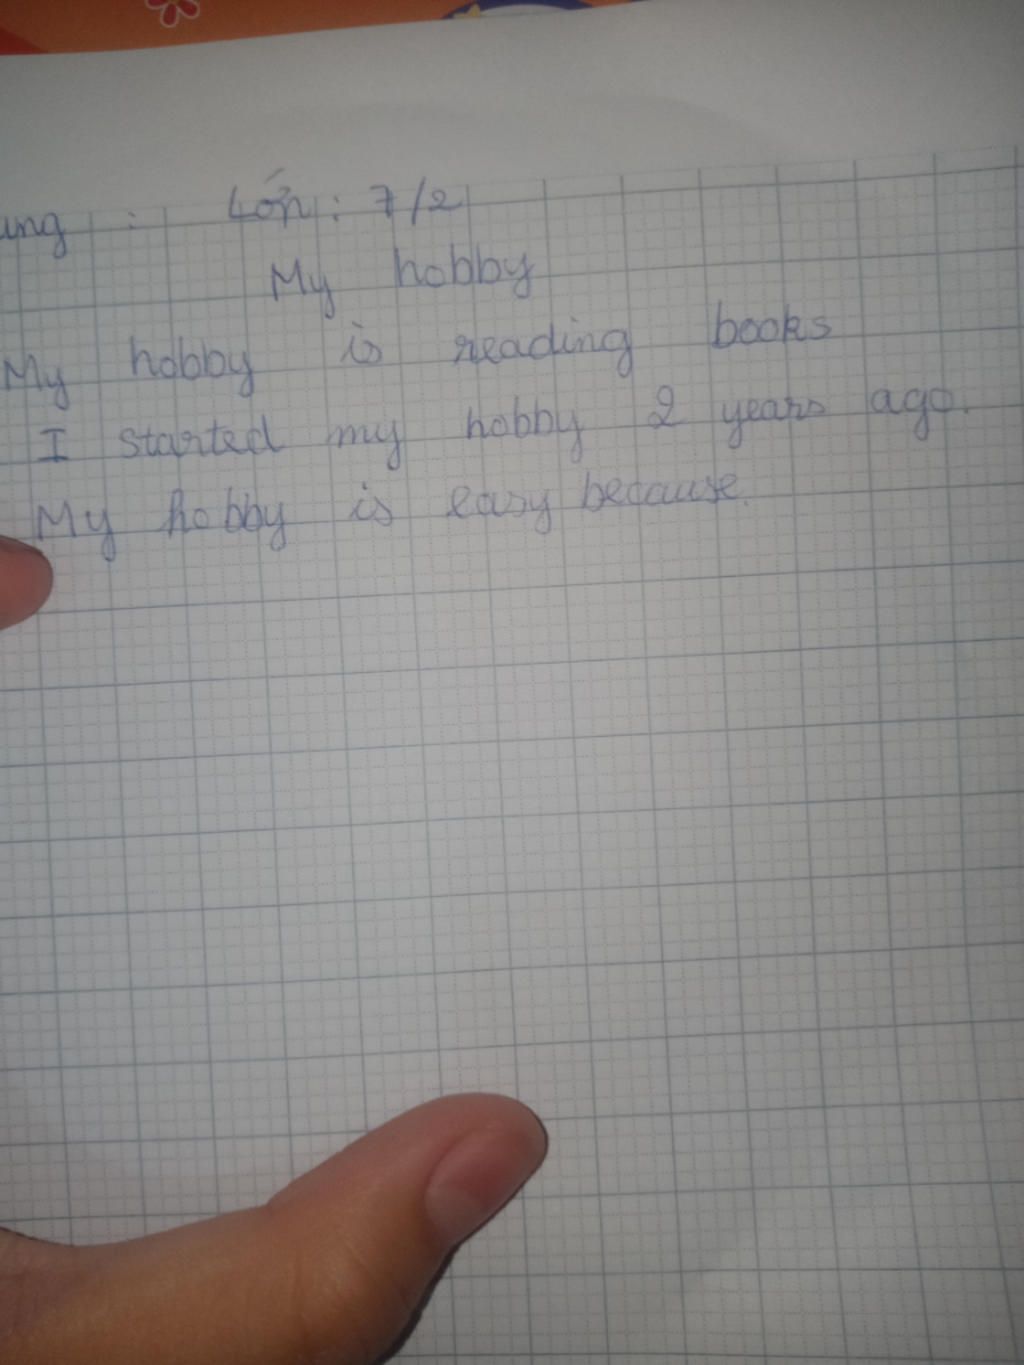 ung : Lớp : 7/2
My hobby
My hobby is reading books
I started my hobby 2 years ago.
My hobby is easy because.